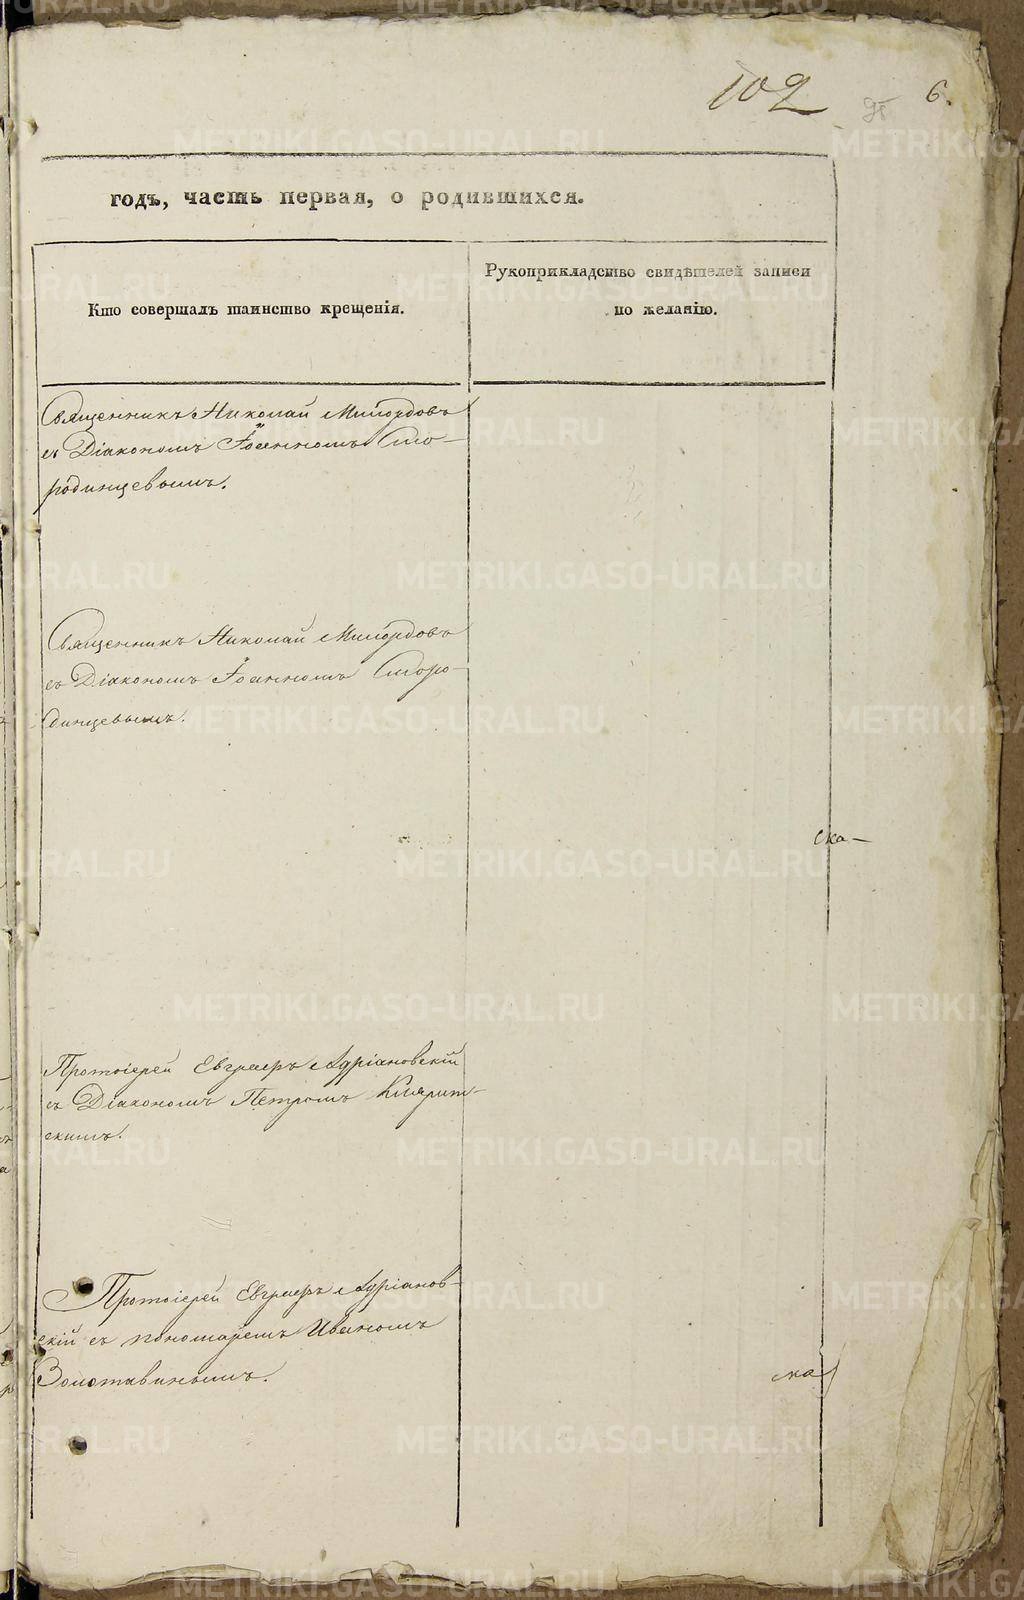 102
95
6.
годъ, часть первая, о родившихся.
Кто совершалъ таинство крещенія.
Рукоприкладство свидѣтелей записи
по желанію.
Священникъ Николай Милордовъ
съ Діакономъ Іоанномъ Сто-
родинцевымъ.
Священникъ Николай Милордовъ
съ Діакономъ Іоанномъ Сторо-
динцевымъ.
ска-
Протоіерей Евграфъ Адріановскій
съ Діакономъ Петромъ
скимъ.
Протоіерей Евграфъ Адріанов-
скій съ пономаремъ Иваномъ
Золотавинымъ.
ска
METRIKI.GASO-URAL.RU